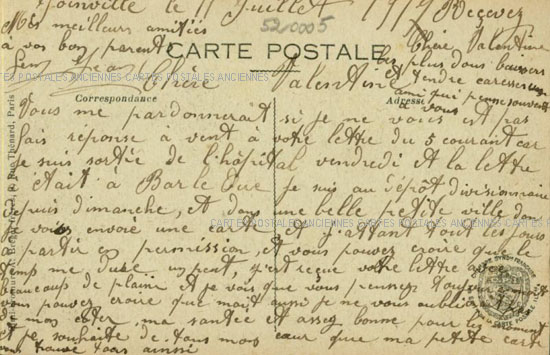 Joinville le 11 Juillet 1917
Recevez
Chère Valentine
les plus doux baisers
et tendre caresses
ami qui pense souvent
à vous
Mes meilleurs amitiés
à vos bons parents
520005
CARTE POSTALE
Chère Valentine
Correspondance
Adresse
Vous me pardonnerait si je ne vous est pas
fais réponse à vent à votre lettre du 5 courant car
je suis sortie de l'hôpital vendredi et la lettre
était à Bar le Duc je suis au dépôt divisionnaire
depuis dimanche, et dans une belle petite ville dont
je vous envoie une carte j'attant tout les jours
partir en permission, et vous pouvez croire que le
temp me dure un peut, j'ai reçue votre lettre avec
beaucoup de plaisir et je vois que vous pensez toujours à
vous pouvez croire que moit aussi je ne vous oublier
ma santée et assez bonne pour les moment
et je souhaite de tous mon cœur que ma petite carte
vous trouve tous ainsi
CARTES POSTALES ANCIENNES CARTES POSTALES ANCIENNES
CARTES POSTALES ANCIENNES CARTES POSTALES ANCIENNES
Rue Thénard, Paris